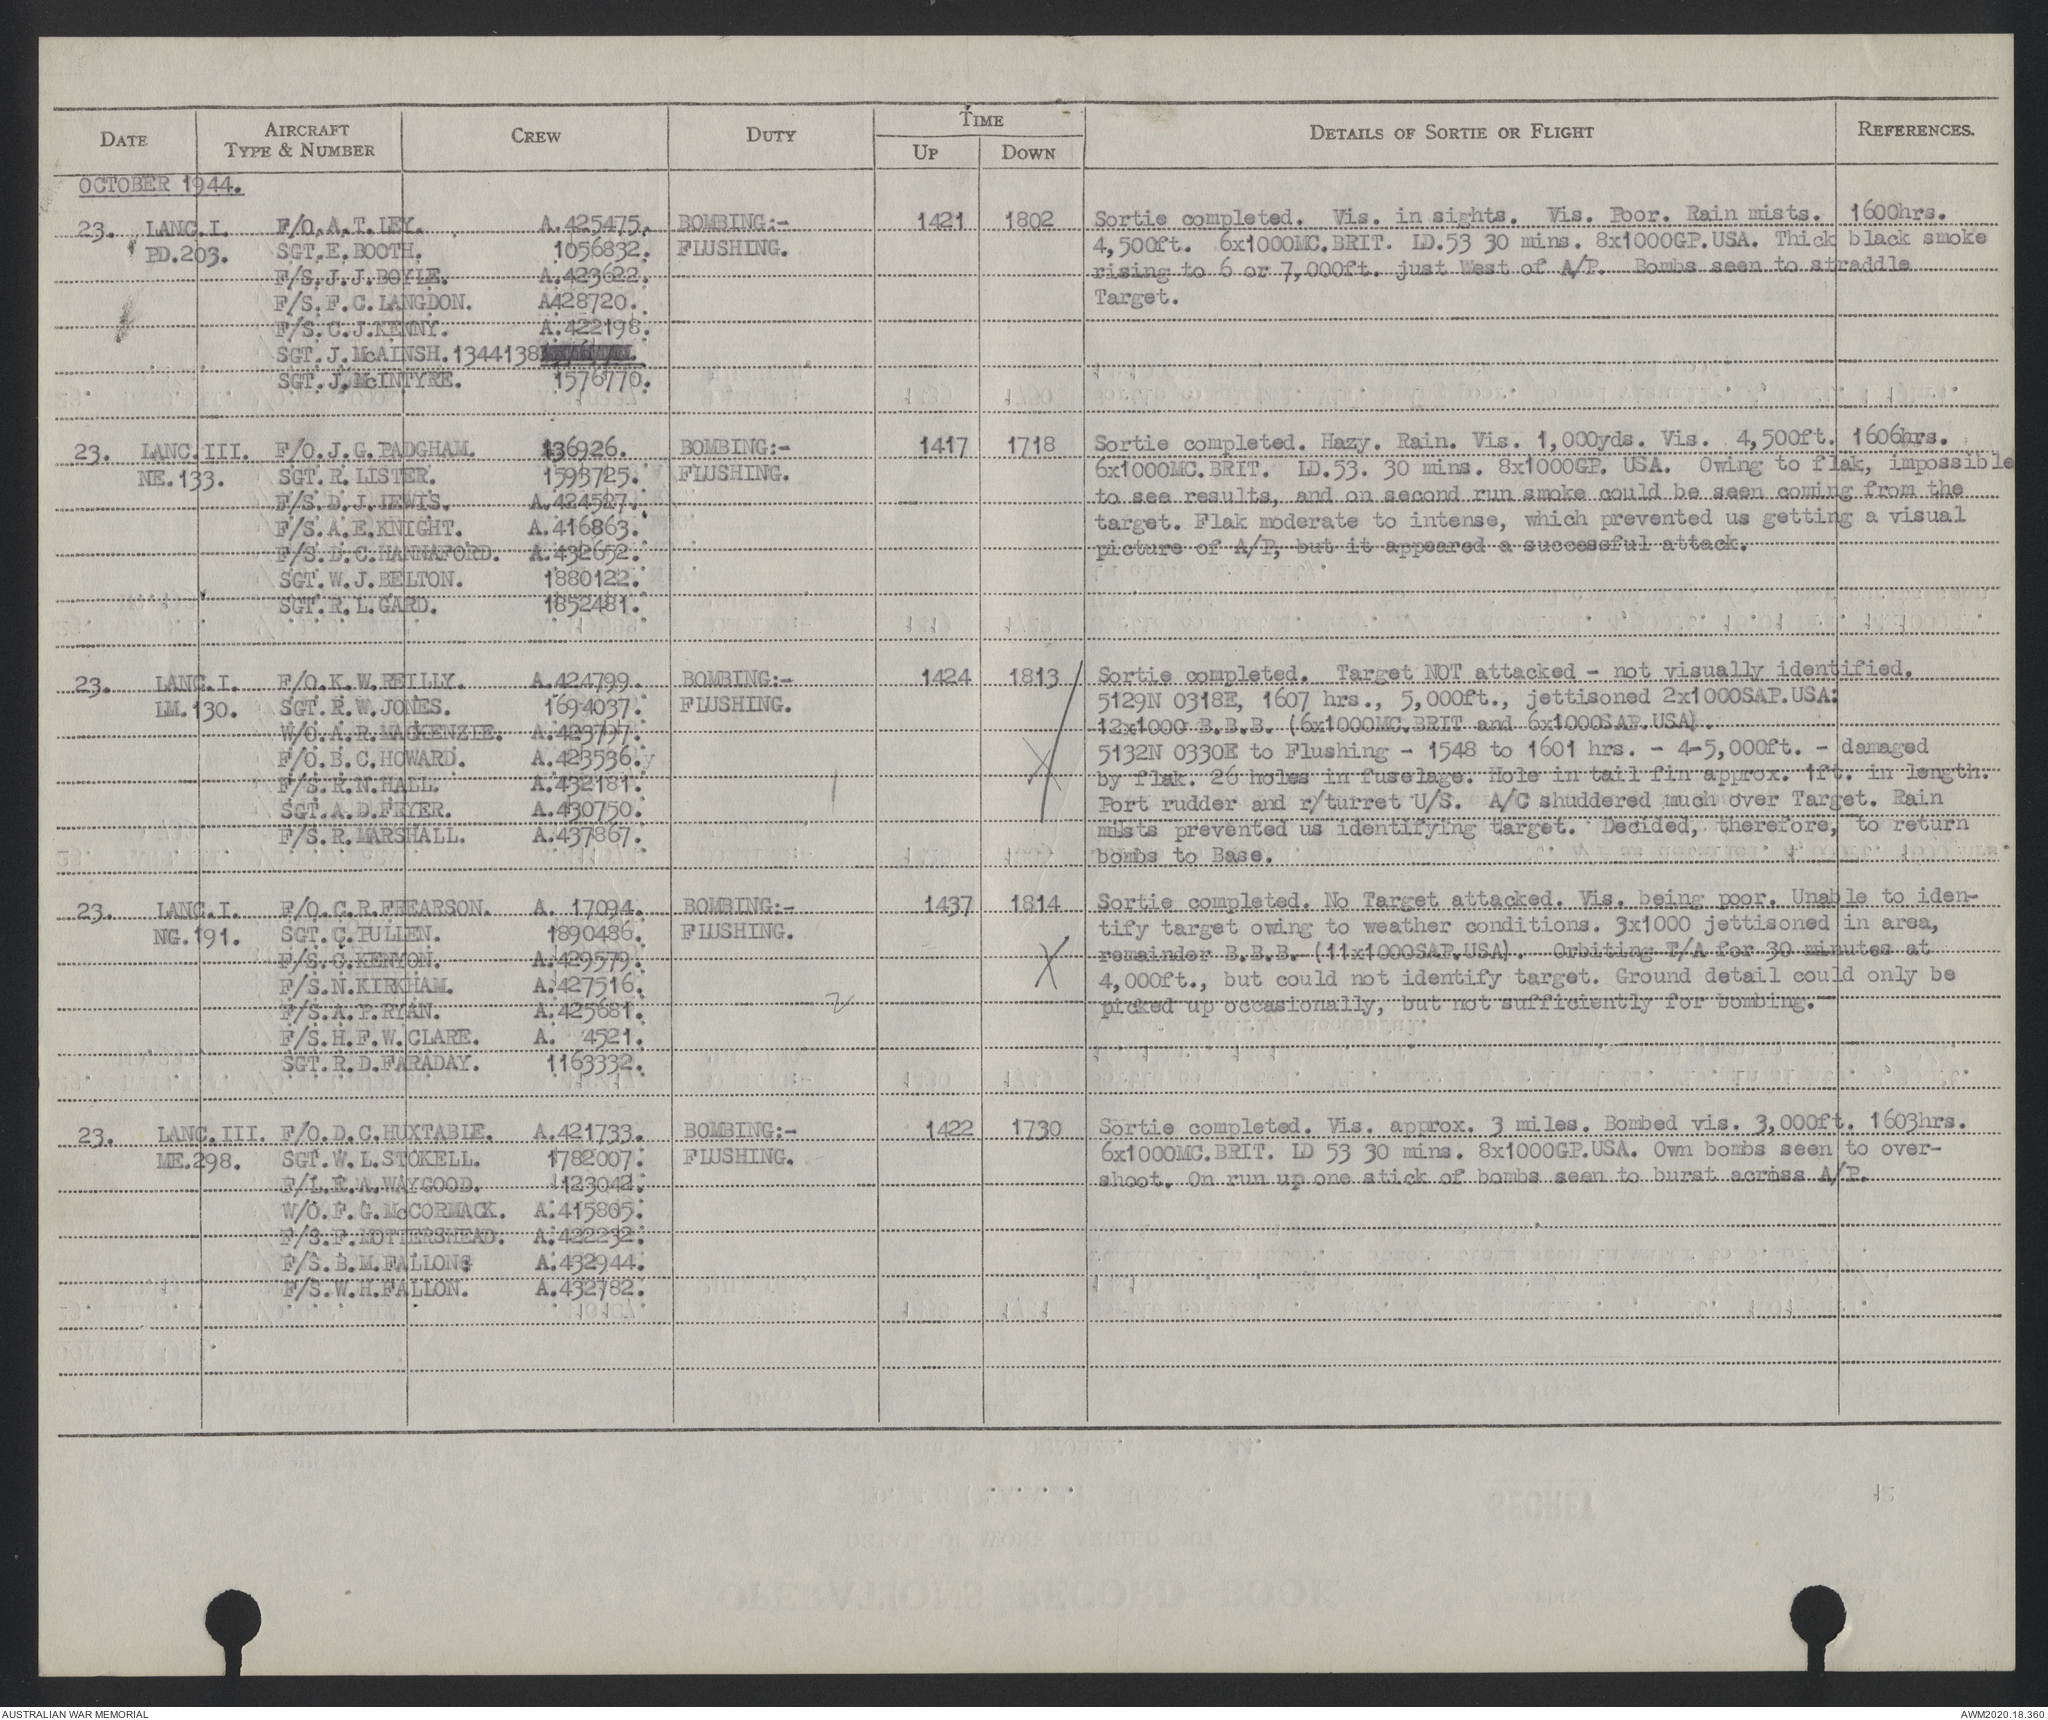 DATE AIRCRAFT TYPE & NUMBER CREW DUTY TIME UP DOWN DETAILS OF SORTIE OR FLIGHT REFERENCES.
OCTOBER 1944.
23. LANC.I. F/O.A.T.LEY. A.425475. BOMBING:- 1421 1802 Sortie completed. Vis. in sights. Vis. Poor. Rain mists. 1600hrs.
PD.203. SGT.E.BOOTH. 1056832. FLUSHING. 4,500ft. 6x1000MC.BRIT. LD.53 30 mins. 8x1000GP.USA. Thick black smoke
F/S.J.J.BOYLE. A.423622. rising to 6 or 7,000ft. just West of A/P. Bombs seen to straddle
F/S.F.C.LANGDON. A428720. Target.
F/S.C.J.KENNY. A.422198.
SGT.J.McAINSH.1344138
SGT.J.McINTYRE. 1576770.
23. LANC.III. F/O.J.G.PADGHAM. 136926. BOMBING:- 1417 1718 Sortie completed. Hazy. Rain. Vis. 1,000yds. Vis. 4,500ft. 1606hrs.
NE.133. SGT.R.LISTER. 1593725. FLUSHING. 6x1000MC.BRIT. LD.53. 30 mins. 8x1000GP. USA. Owing to flak, impossible
F/S.D.J.LEWIS. A.424527. to see results, and on second run smoke could be seen coming from the
F/S.A.E.KNIGHT. A.416863. target. Flak moderate to intense, which prevented us getting a visual
F/S.D.C.HANNAFORD. A.432652. picture of A/P, but it appeared a successful attack.
SGT.W.J.BELTON. 1880122.
SGT.R.L.GARD. 1852481.
23. LANC.I. F/O.K.W.REILLY. A.424799. BOMBING:- 1424 1813 Sortie completed. Target NOT attacked - not visually identified.
LM.130. SGT.R.W.JONES. 1694037. FLUSHING. 5129N 0318E, 1607 hrs., 5,000ft., jettisoned 2x1000SAP.USA:
W/O.A.R.MACKENZIE. A.423797. 12x1000 B.B.B. (6x1000MC.BRIT and 6x1000SAP.USA).
F/O.B.C.HOWARD. A.423536. 5132N 0330E to Flushing - 1548 to 1601 hrs. - 4-5,000ft. - damaged
F/S.R.N.HALL. A.432181. by flak. 26 holes in fuselage. Hole in tail fin approx. 1ft. in length.
SGT.A.D.FRYER. A.430750. Port rudder and r/turret U/S. A/C shuddered much over Target. Rain
F/S.R.MARSHALL. A.437867. mists prevented us identifying target. Decided, therefore, to return
bombs to Base.
23. LANC.I. F/O.C.R.FREARSON. A. 17094. BOMBING:- 1437 1814 Sortie completed. No Target attacked. Vis. being poor. Unable to iden-
NG.191. SGT.C.PULLEN. 1890486. FLUSHING. tify target owing to weather conditions. 3x1000 jettisoned in area,
F/S.C.KENYON. A.429579. remainder B.B.B. (11x1000SAP.USA). Orbiting T/A for 30 minutes at
F/S.N.KIRKHAM. A.427516. 4,000ft., but could not identify target. Ground detail could only be
F/S.A.P.RYAN. A.425681. 2 picked up occasionally, but not sufficiently for bombing.
F/S.H.F.W.CLARE. A. 4521.
SGT.R.D.FARADAY. 1163332.
23. LANC.III. F/O.D.C.HUXTABLE. A.421733. BOMBING:- 1422 1730 Sortie completed. Vis. approx. 3 miles. Bombed vis. 3,000ft. 1603hrs.
ME.298. SGT.W.L.STOKELL. 1782007. FLUSHING. 6x1000MC.BRIT. LD 53 30 mins. 8x1000GP.USA. Own bombs seen to over-
F/L.E.A.WAYGOOD. 123042. shoot. On run up one stick of bombs seen to burst across A/P.
W/O.F.G.McCORMACK. A.415805.
F/S.F.MOTTERSHEAD. A.422232.
F/S.B.M.FALLONS A.432944.
F/S.W.H.FALLON. A.432782.
AUSTRALIAN WAR MEMORIAL AWM2020.18.360